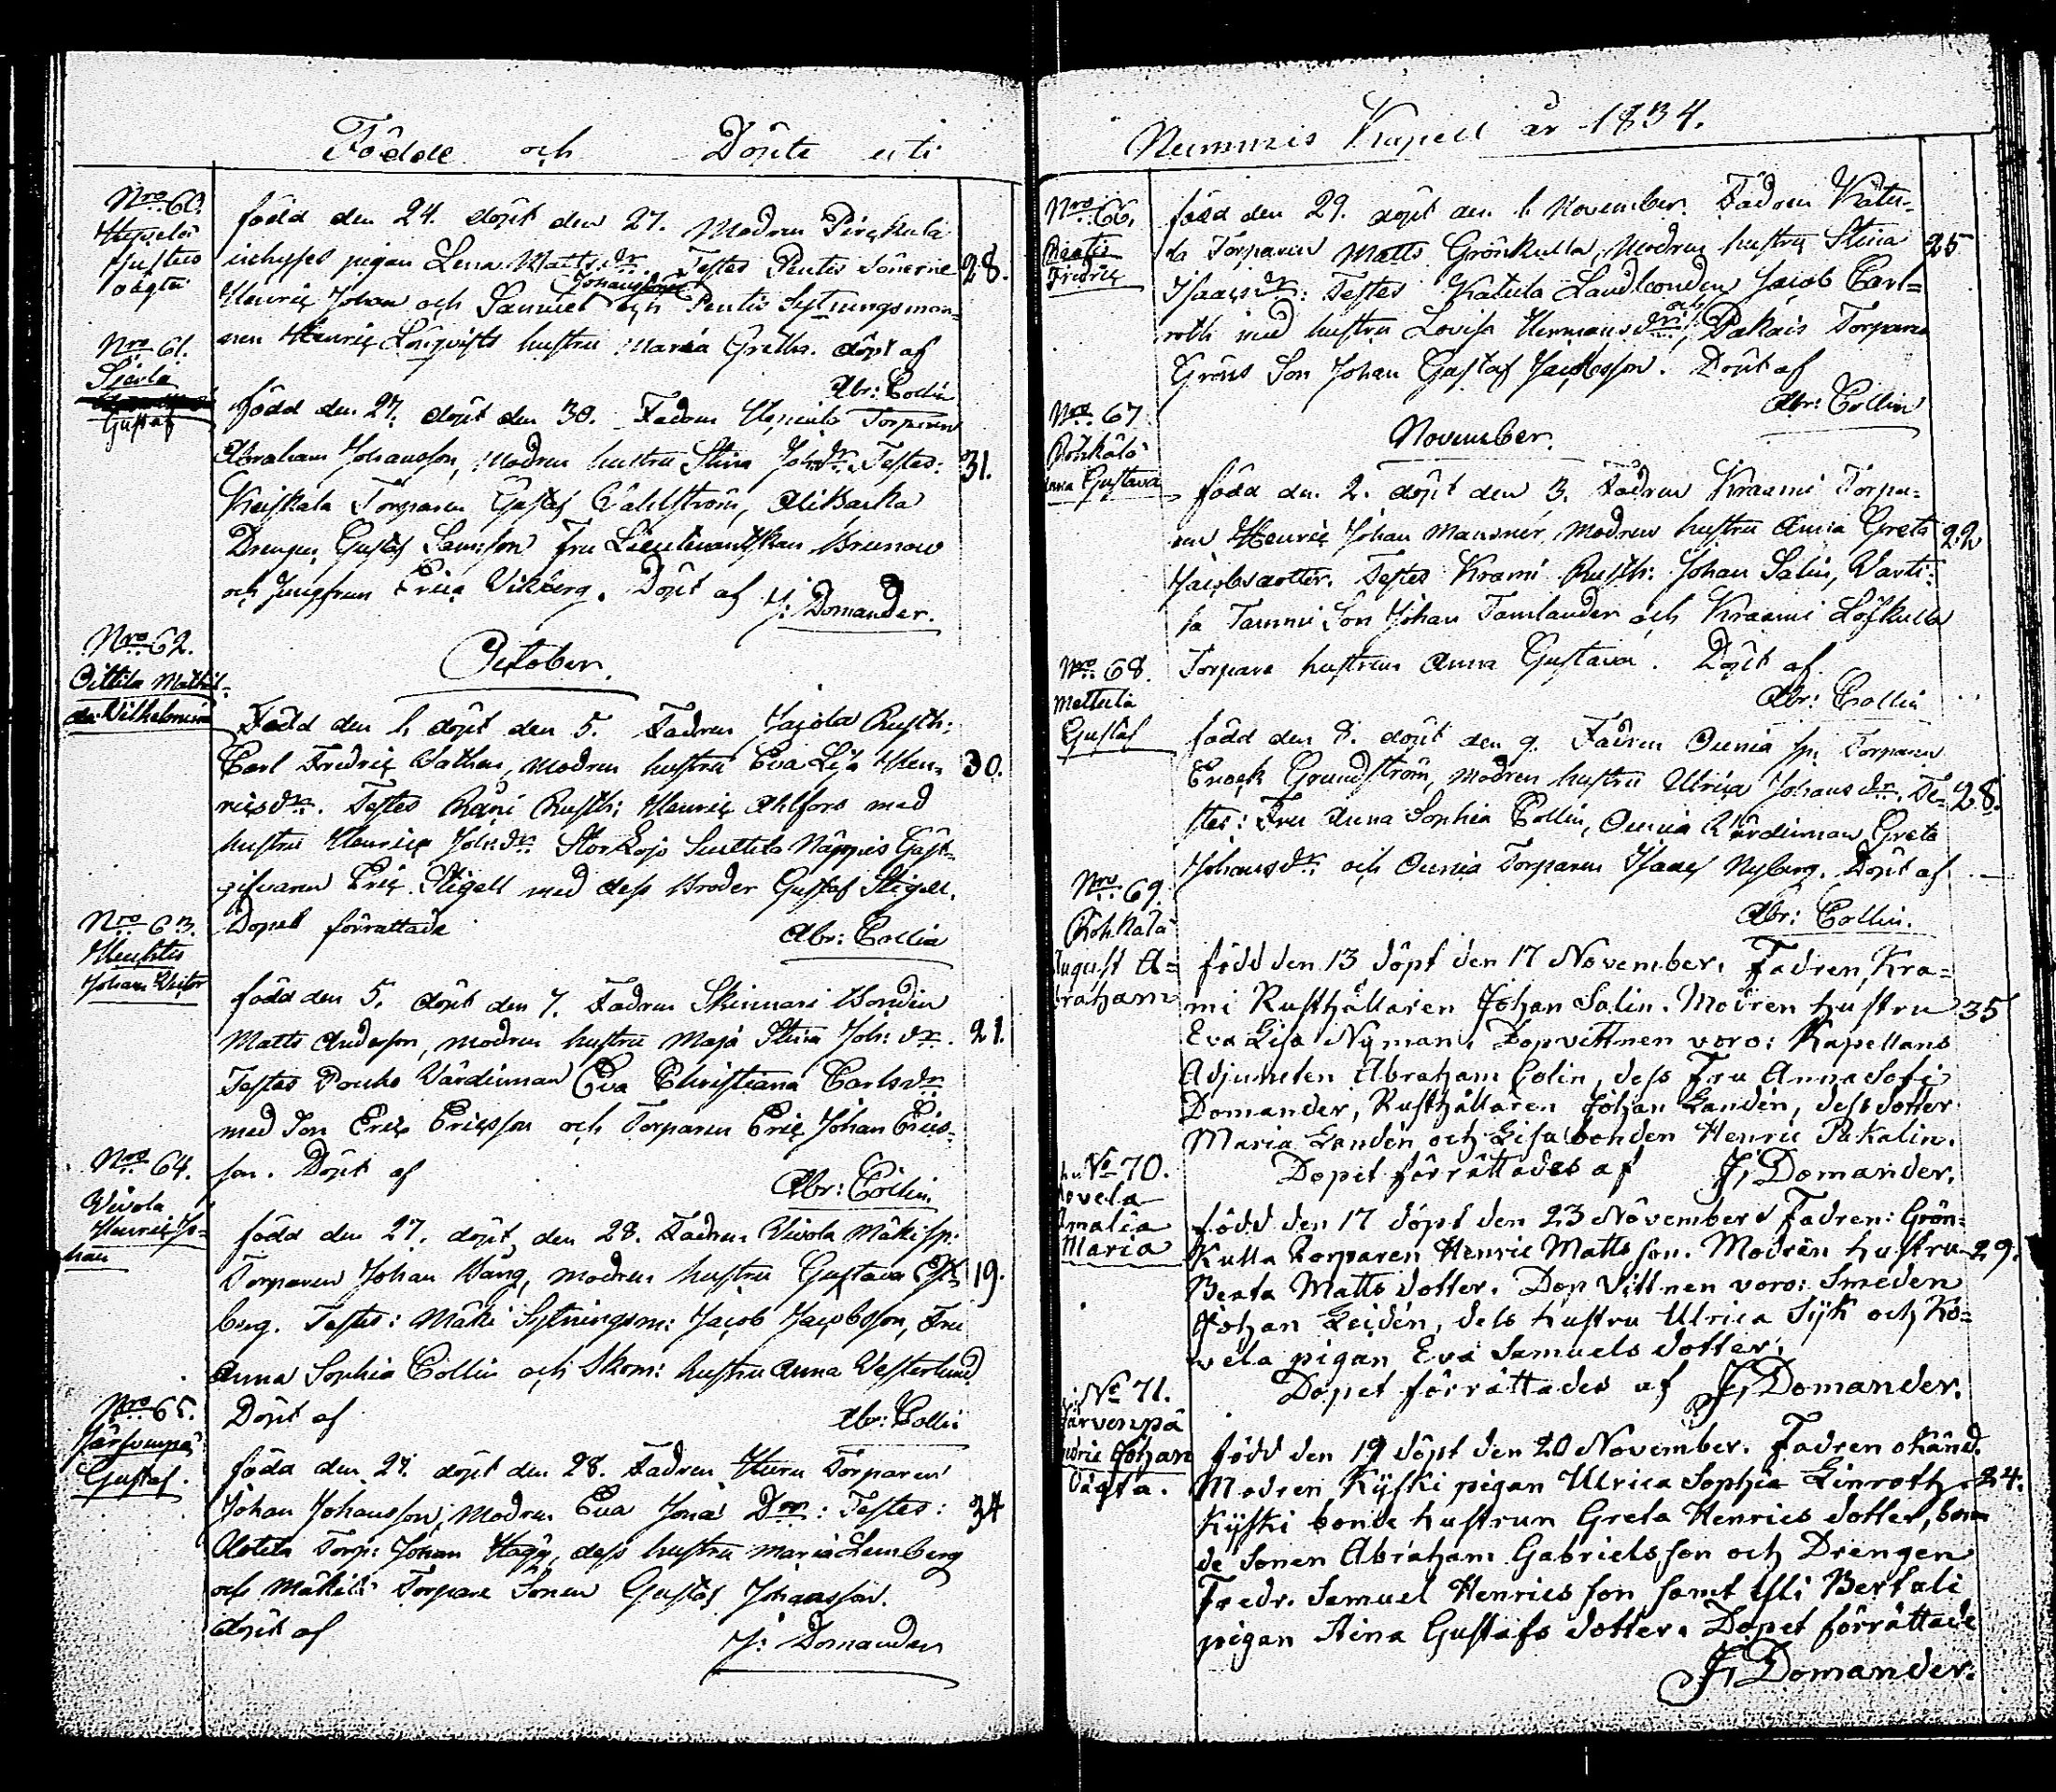 Födde och Döpte uti
Nro 60.
Justus
oägta
född den 24. döpt den 27. Modren Pirskula
inhyses pigan Lena Matts dr. Testes Pentis Sönerne 28.
Johansson
Henric Johan och Samuel och Pentis Sytningsman-
nen Henric Löfqvists hustru Maria Greta. döpt af
Abr: Collin
Nro 61.
Sierla
Gustaf
född den 27. döpt den 30. Fadren Torparen
Abraham Johansson, Modren hustru Stina Joh: dr. Testes: 31.
Keiskala Torparen Gustaf Dahlström, Alitalka
Drengen Gustaf Samsson Fru Lieutenantskan Brunow
och Jungfrun Erica Vikberg. Döpt af J: Domander.
October.
Nro 62.
Oittila Mathil-
da Vilhelmina
Född den 1. döpt den 5. Fadren Jajola Rusth:
Carl Fredric Vathen, Modren hustru Eva Lisa Hen- 30.
rics dr. Testes Räni Rusth: Henric Ahlfors med
hustru Henrica Joh: dr. Storlojo Suttila Näppis Gäst-
gifvaren Eric Stigell med dess Broder Gustaf Stigell.
Dopet förrättade Abr: Collin
Nro 63.
Huhtis
Johan Victor
född den 5. döpt den 7. Fadren Skinnari Bonden
Matts Anderson, modren hustru Maja Stina Joh: dr. 21.
Testes Värdinnan Eva Christiana Carls dr
med Son Eric Ericsson och Torparen Eric Johan Erics-
son. Döpt af
Abr: Collin.
Nro 64.
Vivola
Henric Jo-
han
född den 27. döpt den 28. Fadren Vivola Mäki sp:
Torparen Johan Wäng, modren hustru Gustava 19.
berg. Testes: Mäki Sytningsm: Jacob Jacobsson, Fru
Anna Sophia Collin och Skom: hustru Anna Vesterlund
Döpt af Abr: Collin
Nro 65.
Järfvenpä
Gustaf.
född den 27. döpt den 28. Fadren Huru Torparen
Johan Johansson, Modren Eva Jona Dr: Testes: 34
Uotila Torp: Johan Hägg, dess hustru Maria Lemberg
och Mäkilä Torpare Sonen Gustaf Johansson.
döpt af
J: Domander
Nummis Kapell år 1834.
Nro 66.
Fredric
född den 29. döpt den 1. November. Fadren Katu-
la Torparen Matts Grönkulla, Modren hustru Stina 25
Isaacs dr: Testes Katula Landbonden Jacob Carl-
och
roth med hustru Lovisa Hermans dr: Pakais Torparen
Gröns Son Johan Gustaf Jacobsson. Döpt af
Abr: Collin
November.
Nro 67.
Röhkälä
Anna Gustava
född den 2. döpt den 3. Fadren Kraami Torpa-
ren Henric Johan Mansner, Modren hustru Anna Greta 22
Jacobsdotter. Testes Krami Rusth: Johan Salin, Varti-
la Tammi Son Johan Tamlander och Kraami Löfkulla
Torpare hustrun Anna Gustava. Döpt af
Abr: Collin
Nro 68.
Mettula
Gustaf
född den 8. döpt den 9. Fadren Ounia sp: Torparen
Enock Grundström, modren hustru Ulrica Johans dr. Te- 28.
stes: Fru Anna Sophia Collin, Ounia Värdinnan Greta
Johans dr och Ounia Torparen Isaac Nyberg. Döpt af
Abr: Collin.
Nro 69.
Röhkälä
August A-
braham
född den 13 döpt den 17 November. Fadren, Kra-
mi Rusthållaren Johan Salin. Modren hustru 35
Eva Lisa Nyman. Dopvittnen voro: Kapellans
Adjuncten Abraham Colin, dess Fru Anna Sofi
Domander, Rusthållaren Johan Landén, dess dotter
Maria Landén och Lisa bonden Henric Pakalin.
Dopet förrättades af J, Domander.
No 70.
Kovela
Amalia
Maria
född den 17 döpt den 23 November Fadren: Grön-
kulla torparen Henric Matts son. Modren hustru 29.
Beata Matts dotter. Dop Vittnen voro: Smeden
Johan Leidén, dess hustru Ulrica Sjk och Ko-
vela pigan Eva Samuels dotter.
Dopet förrättades af J, Domander.
No 71.
Järvenpä
Fredric Johan
Oägta.
född den 19 döpt den 20 November. Fadren okänd.
Modren Kyski pigan Ulrica Sophia Linroth. 24.
Kyski bonde hustrun Greta Henrics dotter, bon-
de Sonen Abraham Gabriels son och Drengen
Fredr. Samuel Henrics son samt Isli Bertali
pigan Stina Gustafs dotter. Dopet förrättade
J, Domander.